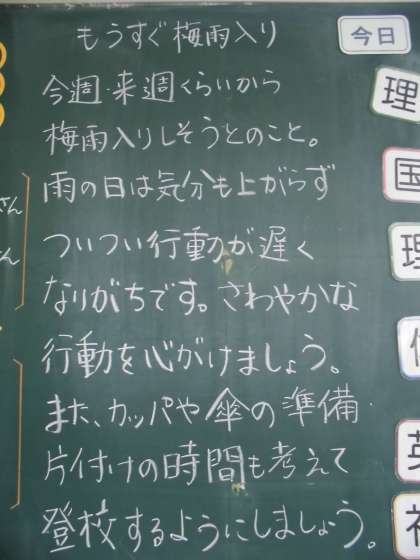 もうすぐ梅雨入り
今週・来週くらいから
梅雨入りしそうとのこと。
雨の日は気分も上がらず
ついつい行動が遅く
なりがちです。さわやかな
行動を心がけましょう。
また、カッパや傘の準備・
片付けの時間も考えて
登校するようにしましょう。
今日
理
国
理
英
さん
さん